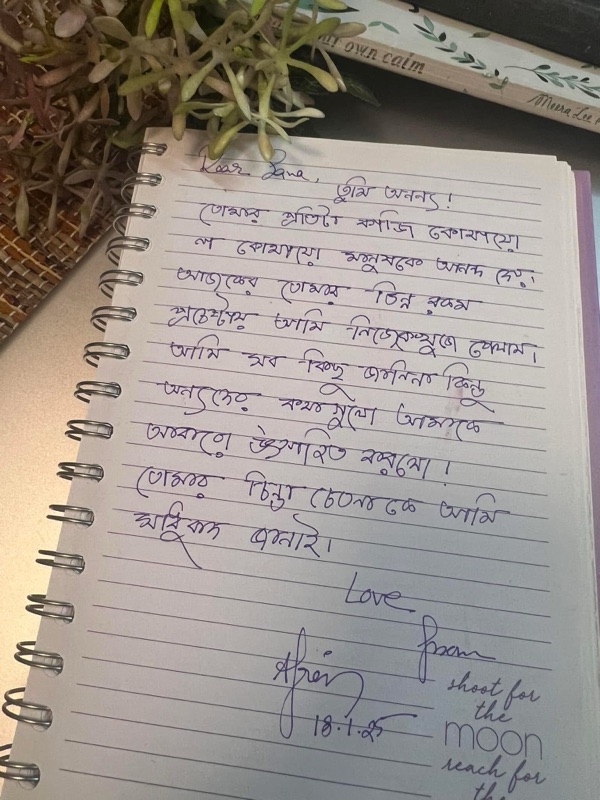 your own calm
Meera Lee
Dear Zana,
তুমি অনন্য!
তোমার প্রতিটা কাজ কোথায়ো
না কোথায়ো মানুষকে আনন্দ দেয়।
আজকের তোমার ভিন্ন রকম
প্রচেষ্টায় আমি নিজেকে খুজে পেলাম।
আমি সব কিছু জানিনা কিন্তু
অন্যদের কথা গুলো আমাকে
আবারো উৎসাহিত করলো।
তোমার চিন্তা চেতনাকে আমি
সাধুবাদ জানাই।
Love
from
Afrin
18.1.25
shoot for
the
moon
reach for
the